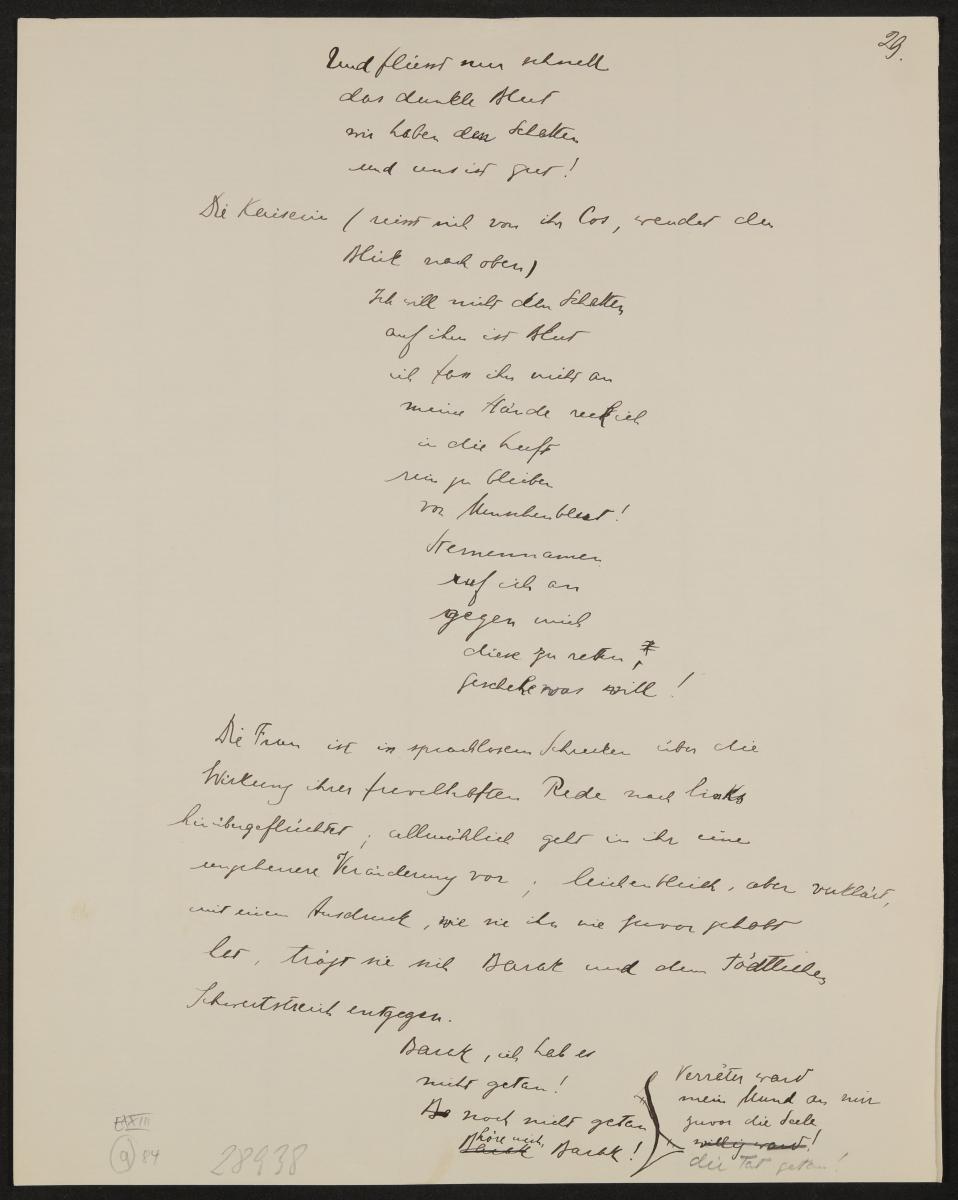 29.
Und fliesst nur schnell
das dunkle Blut
wir haben den Schatten
und uns ist gut!
Die Kaiserin (reisst sich von ihr los, wendet den
Blick nach oben)
Ich will nicht den Schatten
auf ihm ist Blut
ich fass ihn nicht an
meine Hände reck ich
in die Luft
rein zu bleiben
von Menschenblut!
Sternennamen
ruf ich an
gegen mich
diese zu retten,
geschehe was will!
Die Frau ist in sprachlosem Schrecken über die
Wirkung ihrer frevelhaften Rede nach links
hinübergeflüchtet; allmählich geht in ihr eine
ungeheure Veränderung vor; leichenbleich, aber verklärt,
mit einem Ausdruck, wie sie ihn nie zuvor gehabt
hat, trägt sie sich Barak und dem tödtlichen
Schwertstreich entgegen.
Barak, ich hab es
nicht getan!
noch nicht getan
höre mich,
Barak Barak!
Verräter ward
mein Mund an mir
zuvor die Seele
willig ward!
die Tat getan!
LXXIII
9 84
28938